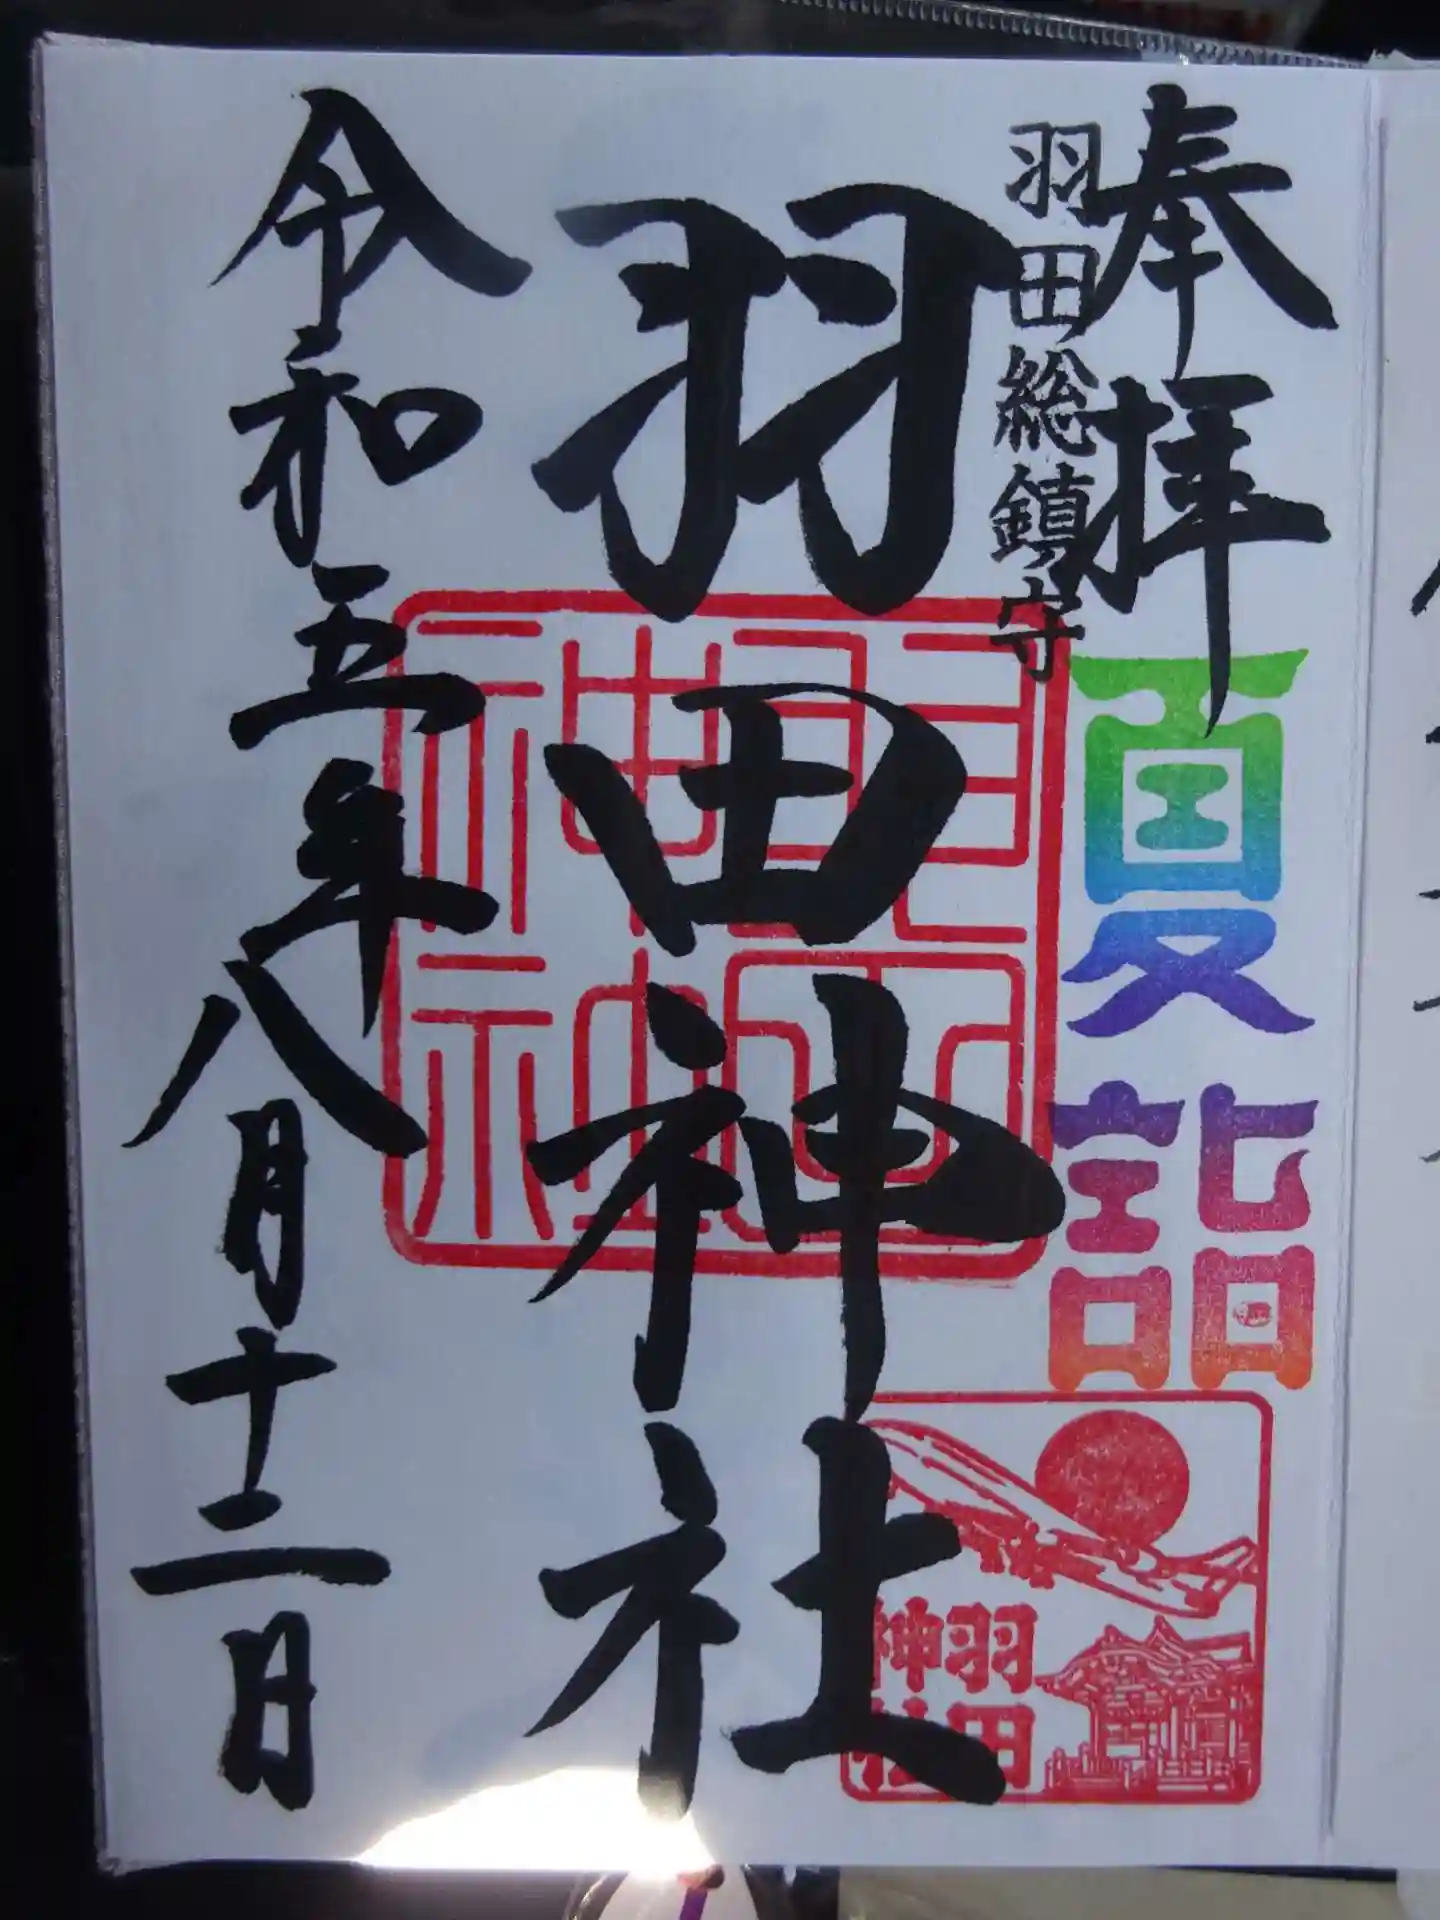 奉拝
夏詣
羽田総鎮守
羽田神社
羽田
神社
令和五年八月十二日